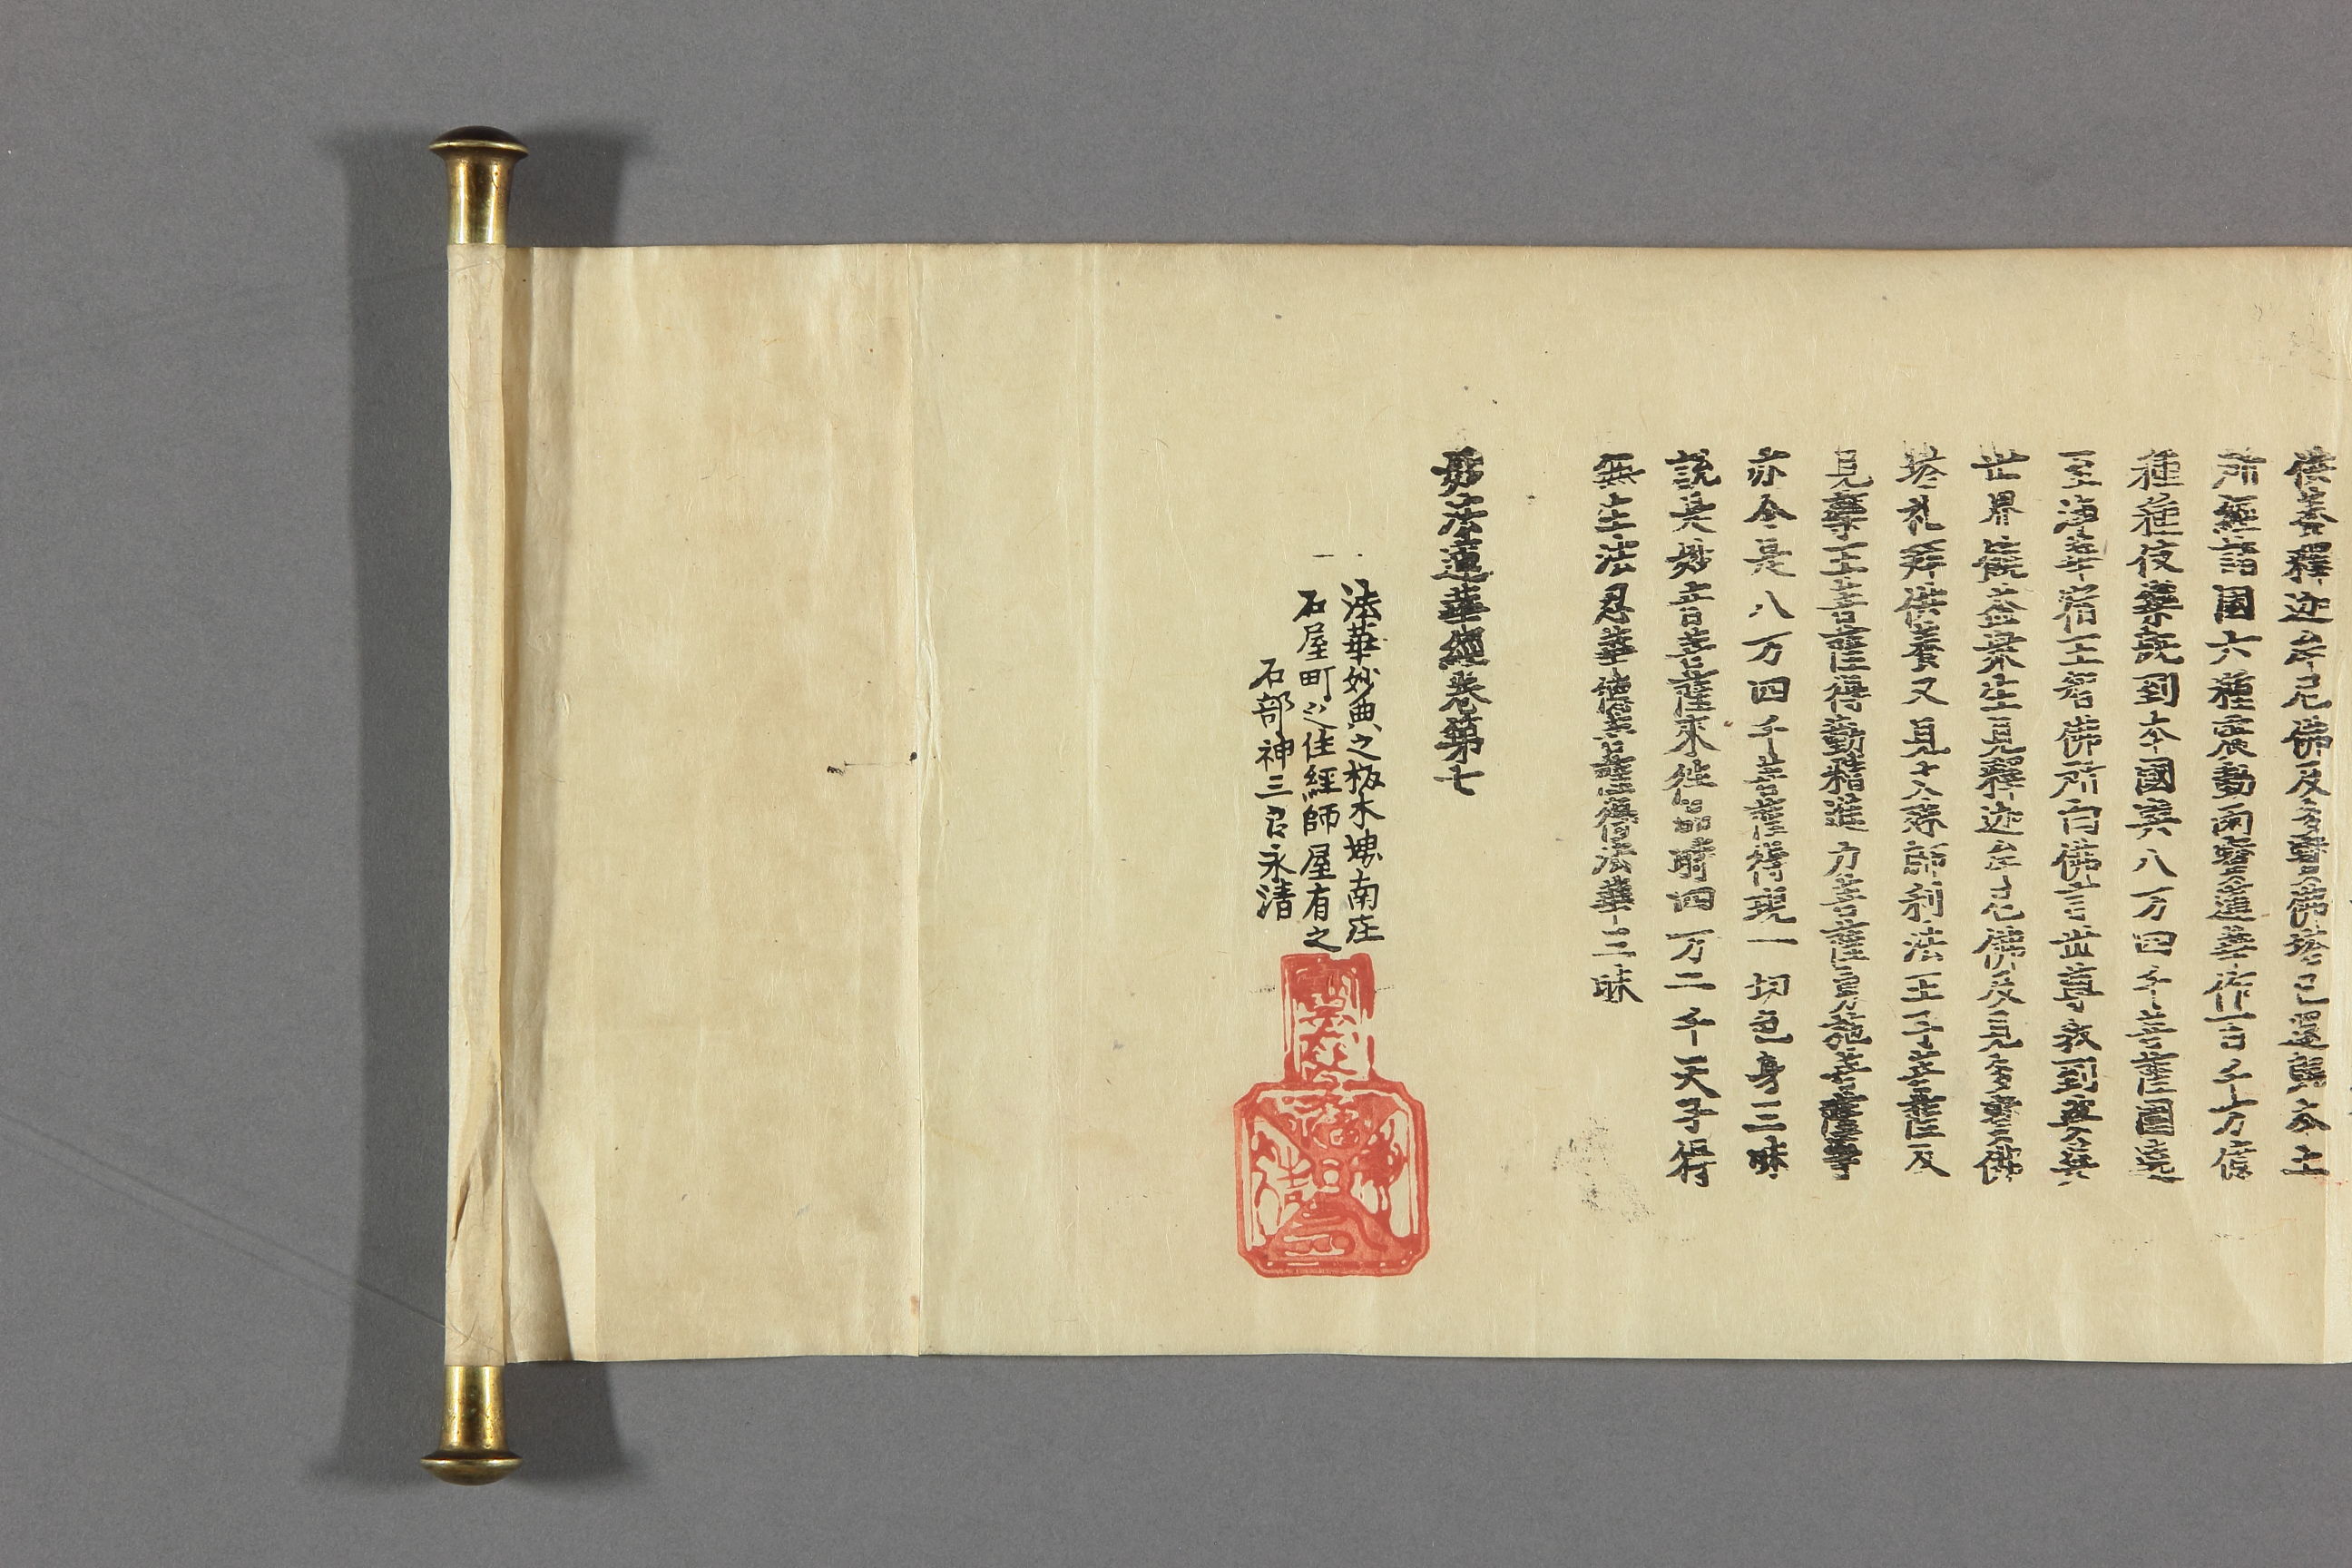 供養釋迦牟尼佛及多寶佛塔已還歸本土
所經諸國六種震動雨寶蓮華作百千万億
種種伎樂旣到本國與八万四千菩薩圍遶
至淨華宿王智佛所白佛言世尊我到娑婆
世界饒益衆生見釋迦牟尼佛及見多寶佛
塔礼拜供養又見文殊師利法王子菩薩及
見藥王菩薩得勤精進力菩薩勇施菩薩等
亦令是八万四千菩薩得現一切色身三昧
說是妙音菩薩來往品時四万二千天子得
無生法忍華德菩薩得法華三昧
妙法蓮華經卷第七
法華妙典之板木堺南庄
石屋町之住經師屋有之
石部神三郎永清